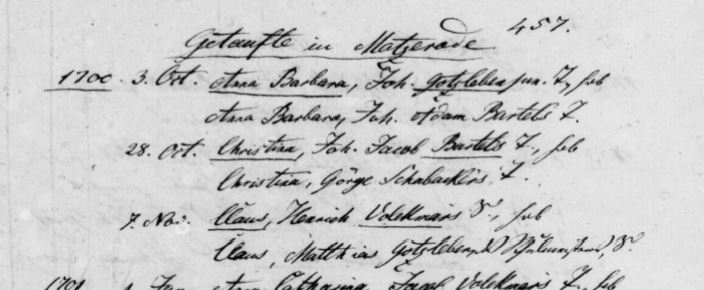 457.
Getaufte in Matzerode
1700. 3. Oct. Anna Barbara, Joh. Gotsleben jun. T., sub
Anna Barbara, Joh. Adam Bartels T.
28. Oct. Christina, Joh. Jacob Bartels T., sub
Christina, Görge Schabackers T.
7. Nov. Claus, Henrich Volckmars S., sub
Claus, Matthias Gotsleben, S.
1701 Jan. Anna Catharina, Jacob Volckmars T., sub